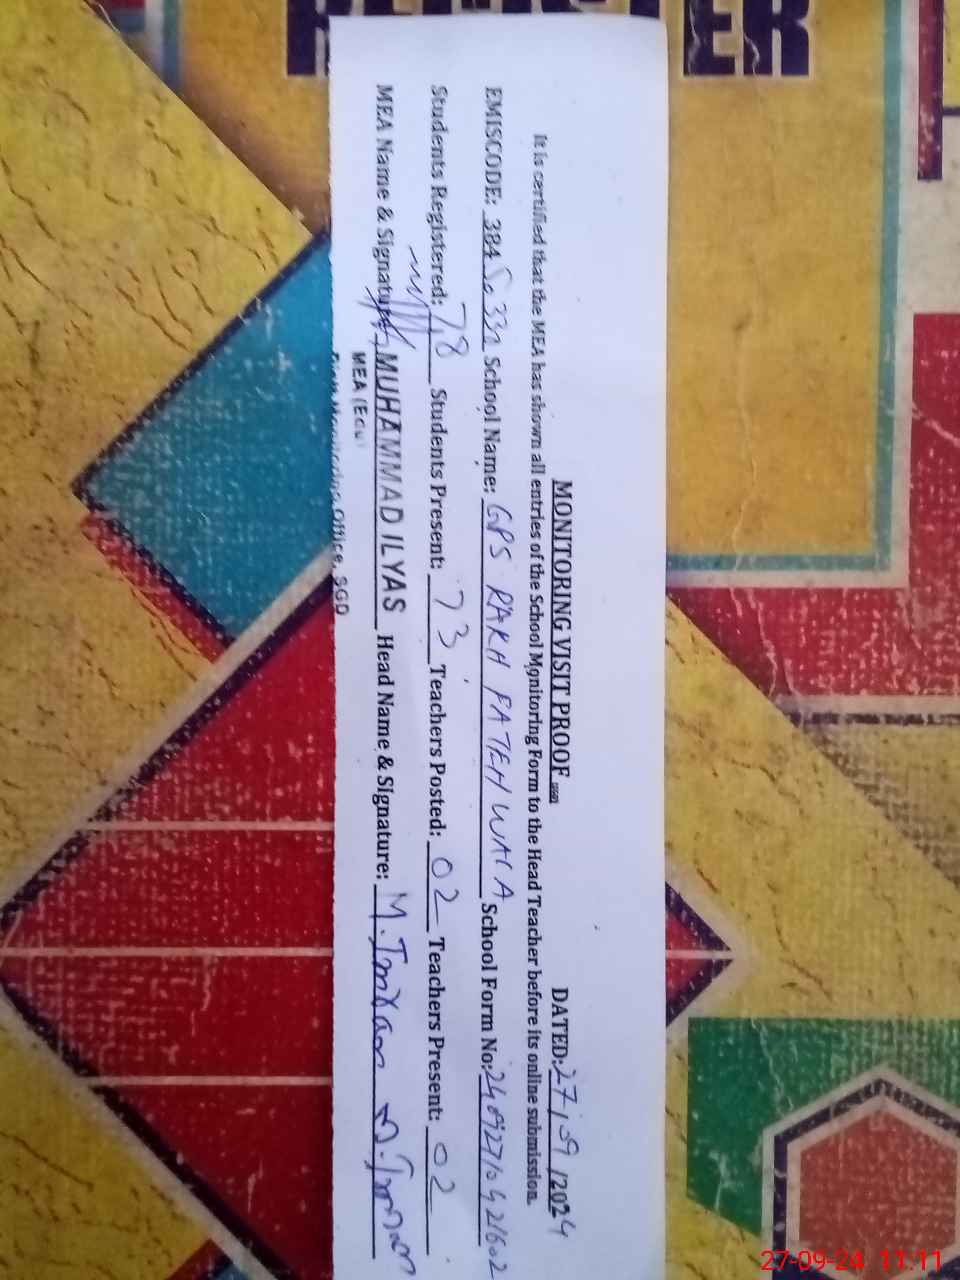 REGISTER
MONITORING VISIT PROOF DATED: 27/09/2024
It is certified that the MEA has shown all entries of the School Monitoring Form to the Head Teacher before its online submission.
EMISCODE: 384 School Name: GPS RAKH FATEH WALA School Form No:
Students Registered: 78 Students Present: 73 Teachers Posted: 02 Teachers Present: 02
MEA Name & Signature: MUHAMMAD ILYAS Head Name & Signature: M. Imran M. Imran
MEA (Edu)
Office, SGD
27-09-24 11:11